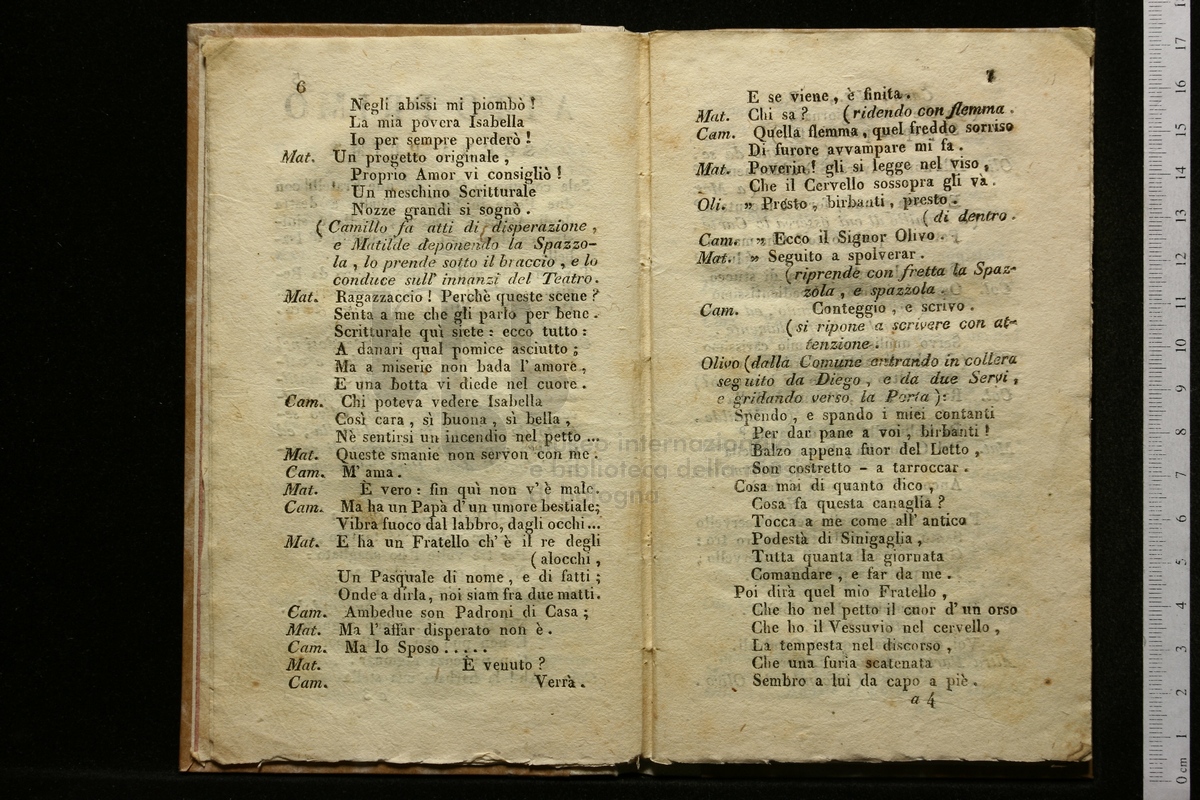 6
Negli abissi mi piombò !
La mia povera Isabella
Io per sempre perderò !
Mat. Un progetto originale ,
Proprio Amor vi consigliò !
Un meschino Scritturale
Nozze grandi si sognò .
( Camillo fa atti di disperazione ,
e Matilde deponendo la Spazzo-
la , lo prende sotto il braccio , e lo
conduce sull' innanzi del Teatro .
Mat. Ragazzaccio ! Perchè queste scene ?
Senta a me che gli parlo per bene .
Scritturale quì siete : ecco tutto :
A danari qual pomice asciutto ;
Ma a miserie non bada l' amore ,
E una botta vi diede nel cuore .
Cam. Chi poteva vedere Isabella
Così cara , sì buona , sì bella ,
Nè sentirsi un incendio nel petto ...
Mat. Queste smanie non servon con me .
Cam. M' ama .
Mat. È vero : fin quì non v' è male .
Cam. Ma ha un Papà d' un umore bestiale;
Vibra fuoco dal labbro, dagli occhi ...
Mat. E ha un Fratello ch' è il re degli
( alocchi ,
Un Pasquale di nome , e di fatti ;
Onde a dirla, noi siam fra due matti .
Cam. Ambedue son Padroni di Casa ;
Mat. Ma l' affar disperato non è .
Cam. Ma lo Sposo . . . . .
Mat. È venuto ?
Cam. Verrà .
7
E se viene , è finita .
Mat. Chi sa ? ( ridendo con flemma .
Cam. Quella flemma , quel freddo sorriso
Di furore avvampare mi fa .
Mat. Poverin ! gli si legge nel viso ,
Che il Cervello sossopra gli và .
Oli. „ Presto , birbanti , presto .
( di dentro .
Cam. „ Ecco il Signor Olivo .
Mat. „ Seguito a spolverar .
( riprende con fretta la Spaz-
zola , e spazzola .
Cam. Conteggio , e scrivo .
( si ripone a scrivere con at-
tenzione .
Olivo ( dalla Comune entrando in collera
seguito da Diego , e da due Servi ,
e gridando verso la Porta ) :
Spendo , e spando i miei contanti
Per dar pane a voi , birbanti !
Balzo appena fuor del Letto ,
Son costretto - a taroccar .
Cosa mai di quanto dico ,
Cosa fa questa canaglia ?
Tocca a me come all' antico
Podestà di Sinigaglia ,
Tutta quanta la giornata
Comandare , e far da me .
Poi dirà quel mio Fratello ,
Che ho nel petto il cuor d' un orso
Che ho il Vessuvio nel cervello ,
La tempesta nel discorso ,
Che una furia scatenata
Sembro a lui da capo a piè .
a 4